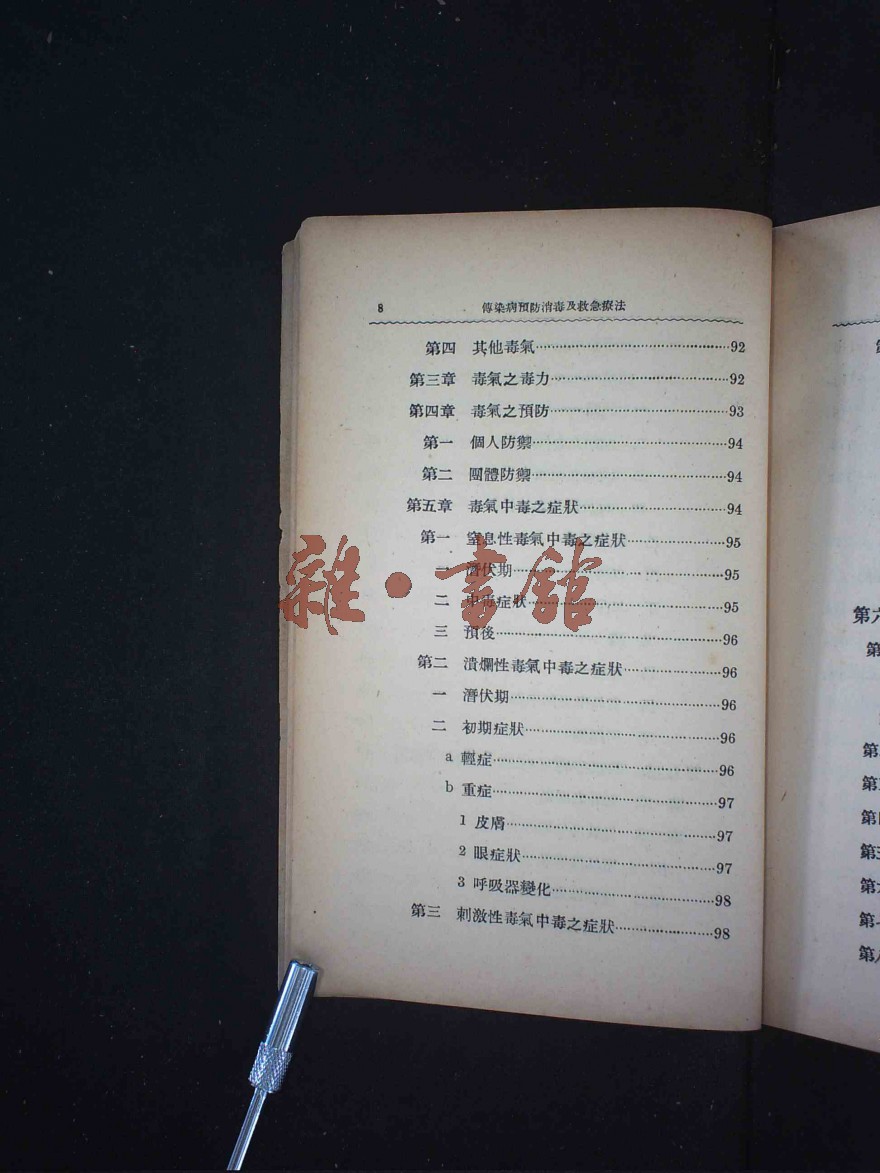 8 傳染病預防消毒及救急療法
第四 其他毒氣……92
第三章 毒氣之毒力……92
第四章 毒氣之預防……93
第一 個人防禦……94
第二 團體防禦……94
第五章 毒氣中毒之症狀……94
第一 窒息性毒氣中毒之症狀……95
一 潛伏期……95
二 中毒症狀……95
三 預後……96
第二 潰爛性毒氣中毒之症狀……96
一 潛伏期……96
二 初期症狀……96
a 輕症……96
b 重症……97
1 皮膚……97
2 眼症狀……97
3 呼吸器變化……98
第三 刺激性毒氣中毒之症狀……98
雜·書館
第六
第
第
第
第四
第五
第六
第七
第八